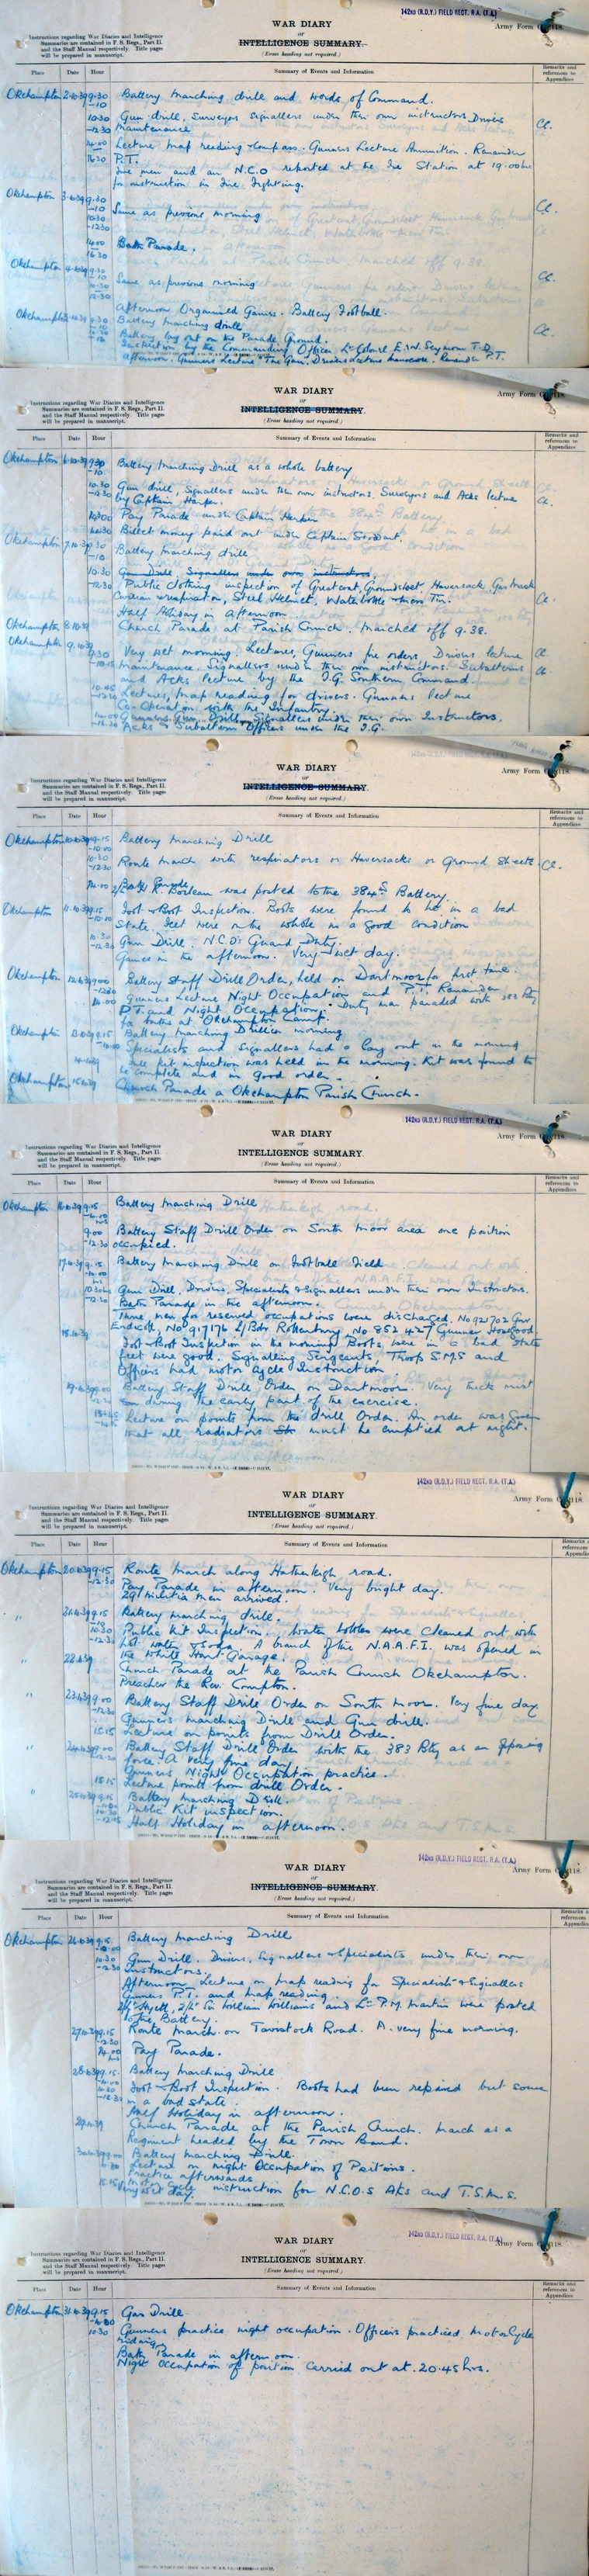 142ND (R.D.Y.) FIELD REGT. R.A. (T.A.)
WAR DIARY
or
INTELLIGENCE SUMMARY.
(Erase heading not required.)
Army Form
Instructions regarding War Diaries and Intelligence
Summaries are contained in F. S. Regs., Part II.
and the Staff Manual respectively. Title pages
will be prepared in manuscript.
Place Date Hour Summary of Events and Information Remarks and references to Appendices
Okehampton 2.10.39 9.30 -10 Battery marching drill and words of Command.
10.30 -12.30 Gun drill, Surveyors signallers under their own instructors Drivers
Maintenance
14.00 16.30 Lecture Map reading & Compass. Gunners Lecture Ammunition. Remainder
P.T.
men and an N.C.O reported at the Fire Station at 19.00 hrs
for instruction in Fire Fighting.
Okehampton 3.10.39 9.30 -10 10.30 -12.30 Same as previous morning
14.00 16.30 Bath Parade.
Okehampton 4.10.39 9.30 -10 10.30 12.30 Same as previous morning
Afternoon Organised Games. Battery Football.
Okehampton 9.30 Battery marching drill
Battery lay out on the Parade Ground.
Inspection by the Commanding Officer Lt Colonel E.W. Seymour T.D.
Afternoon. Gunners Lecture The Gun. Drivers Lecture Remainder P.T.
WAR DIARY
or
INTELLIGENCE SUMMARY.
(Erase heading not required.)
Army Form
Instructions regarding War Diaries and Intelligence
Summaries are contained in F. S. Regs., Part II.
and the Staff Manual respectively. Title pages
will be prepared in manuscript.
Place Date Hour Summary of Events and Information Remarks and references to Appendices
Okehampton 6.10.39 9.30 -10. Battery Marching Drill as a whole battery
10.30 -12.30 Gun drill, Signallers under their own instructors. Surveyors and Acks lecture
by Captain Harper.
14.00 Pay Parade under Captain Harper
Billet money paid out under Captain Stoddart.
Okehampton 7.10.39 9.30 -10 Battery marching drill
10.30 -12.30 Gun Drill, Signallers under own instructors.
Public Clothing inspection of Greatcoat, Groundsheet Haversack, Gas Mask
Civilian respirator, Steel Helmet, Waterbottle Mess Tin.
Half Holiday in afternoon
Okehampton 8.10.39 Church Parade at Parish Church. Marched off 9.38.
Okehampton 9.10.39 9.30 -10.15 Very wet morning. Lectures, Gunners fire orders Drivers lecture
maintenance. Signallers under their own instructors. Subalterns
and Acks lecture by the I.G. Southern Command.
10.45 -12.30 Lectures, map reading for drivers. Gunners lecture
Co-operation with the Infantry.
14.00 Gunners Gun Drill, Signallers under their own Instructors.
Acks & Subaltern Officers under the I.G.
WAR DIARY
or
INTELLIGENCE SUMMARY.
(Erase heading not required.)
Army Form
Instructions regarding War Diaries and Intelligence
Summaries are contained in F. S. Regs., Part II.
and the Staff Manual respectively. Title pages
will be prepared in manuscript.
Place Date Hour Summary of Events and Information Remarks and references to Appendices
Okehampton 10.10.39 9.15 -10.00 Battery Marching Drill
10.30 -12.30 Route March with respirators or Haversacks or Ground Sheets.
14.00 Bath Parade
was posted to the 384th Battery
Okehampton 11.10.39 9.15 -10.00 Foot & Boot Inspection. Boots were found to be in a bad
State. Feet were on the whole in a good condition
10.30 -12.30 Gun Drill. N.C.O's Guard Duty.
Games in the afternoon. Very wet day.
Okehampton 12.10.39 9.00 -12.30 Battery Staff Drill Order, held on Dartmoor for first time.
14.00 Gunners Lecture Night Occupation and P.T. Remainder
P.T. and Night Occupation. Duty man paraded with 383 Bty
for baths at Okehampton Camp.
Okehampton 13.10.39 9.15 -10.00 Battery Marching Drill in morning
Specialists and signallers had a lay out in the morning
14.10.39 Full kit inspection was held in the morning. Kit was found to
be complete and in good order.
Okehampton 15.10.39 Church Parade a Okehampton Parish Church.
142ND (R.D.Y.) FIELD REGT. R.A. (T.A.)
WAR DIARY
or
INTELLIGENCE SUMMARY.
(Erase heading not required.)
Army Form
Instructions regarding War Diaries and Intelligence
Summaries are contained in F. S. Regs., Part II.
and the Staff Manual respectively. Title pages
will be prepared in manuscript.
Place Date Hour Summary of Events and Information Remarks and references to Appendices
Okehampton 16.10.39 9.15 -10.00 hrs Battery Marching Drill
9.00 -12.30 Battery Staff Drill Order on South Moor area one position
occupied.
17.10.39 9.15 -10.00 hrs Battery Marching Drill on Football Field
10.30 hrs -12.30 Gun Drill, Drivers, Specialists & Signallers under their own Instructors.
Bath Parade in the afternoon.
Three men for reserved occupations were discharged, No 921702 Gnr
Endicott, No 917176 L/Bdr Rottenbury, No 852427 Gunner Hosegood
18.10.39 Foot & Boot Inspection in the morning Boots were in a bad State
feet were good. Signalling Sergeants, Troop S.M.S and
Officers had motor cycle Instruction
19.10.39 9.00 Battery Staff Drill Order on Dartmoor. Very thick mist
during the early part of the exercise.
Lecture on points from the drill Order. An order was given
that all radiators must be emptied at night.
142ND (R.D.Y.) FIELD REGT. R.A. (T.A.)
WAR DIARY
or
INTELLIGENCE SUMMARY.
(Erase heading not required.)
Army Form
Instructions regarding War Diaries and Intelligence
Summaries are contained in F. S. Regs., Part II.
and the Staff Manual respectively. Title pages
will be prepared in manuscript.
Place Date Hour Summary of Events and Information
Okehampton 20.10.39 9.15 -12.30 Route March along Hatherleigh road.
Pay Parade in afternoon. Very bright day.
29 Militia Men arrived.
" 21.10.39 9.15 -10 Battery marching drill.
10.30 -12.30 Public Kit Inspection. Water bottles were cleaned out with
hot water & Soda. A branch of the N.A.A.F.I. was opened in
the White Hart Garage.
" 22.10.39 Church Parade at the Parish Church Okehampton.
Preacher the Rev. Compton.
" 23.10.39 9.00 -12.30 Battery Staff Drill Order on South Moor. Very fine day
Gunners marching Drill and Gun drill.
15.15 Lecture on points from Drill Order.
" 24.10.39 9.00 -12.30 Battery Staff Drill Order with the 383 Bty as an opposing
force. A very fine day
Gunners Night Occupation practice.
15.15 Lecture points from drill Order.
" 25.10.39 9.15 Battery Marching Drill.
10.30 Public Kit inspection.
Half Holiday in afternoon.
142ND (R.D.Y.) FIELD REGT. R.A. (T.A.)
WAR DIARY
or
INTELLIGENCE SUMMARY.
(Erase heading not required.)
Army Form
Instructions regarding War Diaries and Intelligence
Summaries are contained in F. S. Regs., Part II.
and the Staff Manual respectively. Title pages
will be prepared in manuscript.
Place Date Hour Summary of Events and Information
Okehampton 26.10.39 9.15 -10.00 Battery Marching Drill
10.30 -12.30 Gun Drill. Drivers, Signallers & Specialists under their own
Instructors.
Afternoon Lecture on map reading for Specialists & Signallers
Gunners P.T. and map reading.
2/Lt Hyett, 2/Lt Sir William Williams and Lt P.M. Martin were posted
to the Battery.
27.10.39 9.15 -12.30 Route March on Tavistock Road. A very fine morning.
14.00 hrs Pay Parade.
28.10.39 9.15 -10.00 Battery Marching Drill
10.30 -12.30 Foot & Boot Inspection. Boots had been repaired but some
in a bad state.
Half Holiday in afternoon.
29.10.39 Church Parade at the Parish Church. March as a
Regiment headed by the Town Band.
30.10.39 9.00 Battery Marching Drill.
Lecture on night Occupation of Positions.
Practice afterwards
15.15 Motor Cycle instruction for N.C.O.s Aks and T.S.M.s.
Very wet day.
142ND (R.D.Y.) FIELD REGT. R.A. (T.A.)
WAR DIARY
or
INTELLIGENCE SUMMARY.
(Erase heading not required.)
Army Form
Instructions regarding War Diaries and Intelligence
Summaries are contained in F. S. Regs., Part II.
and the Staff Manual respectively. Title pages
will be prepared in manuscript.
Place Date Hour Summary of Events and Information Remarks and references to Appendices
Okehampton 31.10.39 9.15 -10.00 Gas Drill
10.30 Gunners practice night occupation. Officers practiced Motor Cycle
riding
Bath Parade in afternoon.
Night Occupation of position carried out at 20.45 hrs.